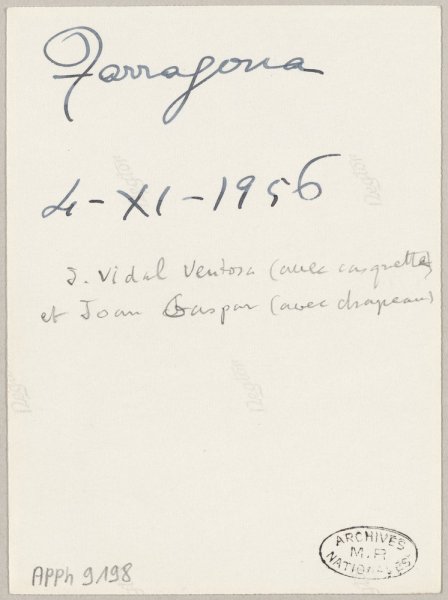 Tarragona
4-XI-1956
J. Vidal Ventosa (avec casquette)
et Joan Gaspar (avec chapeau)
ARCHIVES
M.P.
NATIONALES
APPh 9198